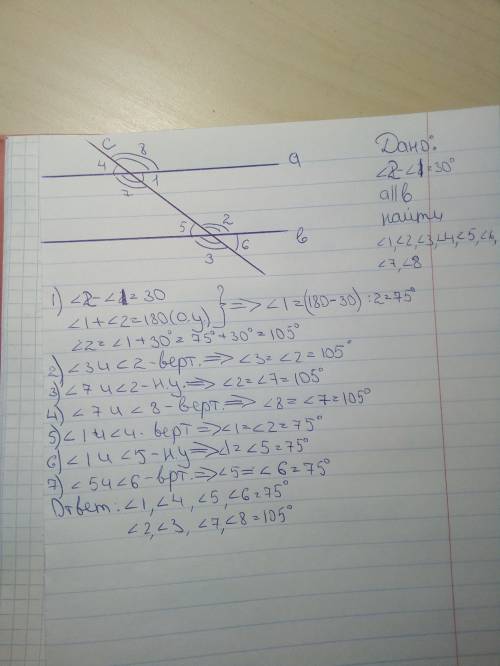 c
8
a
4
1
7
5
2
в
6
3
Дано:
∠2-∠1=30°
a||в
найти
∠1,∠2,∠3,∠4,∠5,∠6,
∠7,∠8
1) ∠2-∠1=30
∠1+∠2=180(О.У) } => ∠1=(180-30):2=75°
∠2=∠1+30°=75°+30°=105°
2) ∠3 и ∠2-верт.=>∠3=∠2=105°
3) ∠7 и ∠2-НУ.=>∠2=∠7=105°
4) ∠7 и ∠8-верт.=>∠8=∠7=105°
5) ∠1 и ∠4. верт=>∠1=∠2=75°
6) ∠1 и ∠5-НУ=>∠1=∠5=75°
7) ∠5 и ∠6-врт.=>∠5=∠6=75°
Ответ: ∠1,∠4,∠5,∠6=75°
∠2,∠3,∠7,∠8=105°